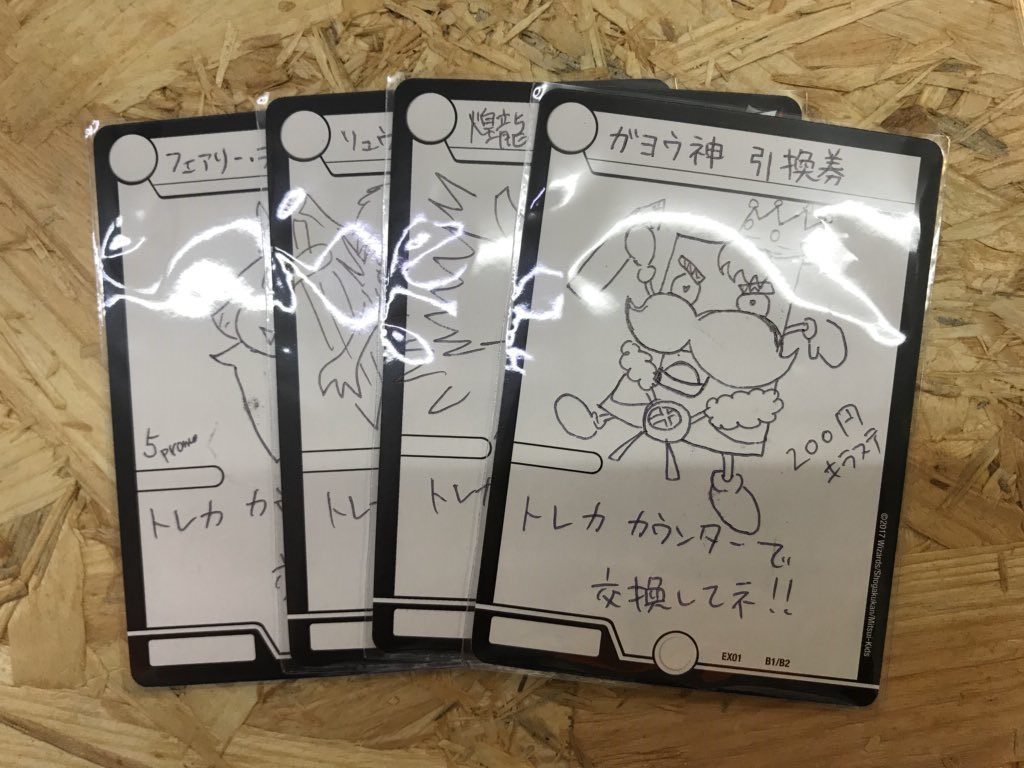 フェアリー・
5 promo
トレカ カ
リュウ
トレ
煌龍
トレ
ガヨウ神 引換券
200円
キラステ
トレカ カウンターで
交換してネ!!
EX01 B1/B2
©2017 Wizards/Shogakukan/Mitsui-Kids